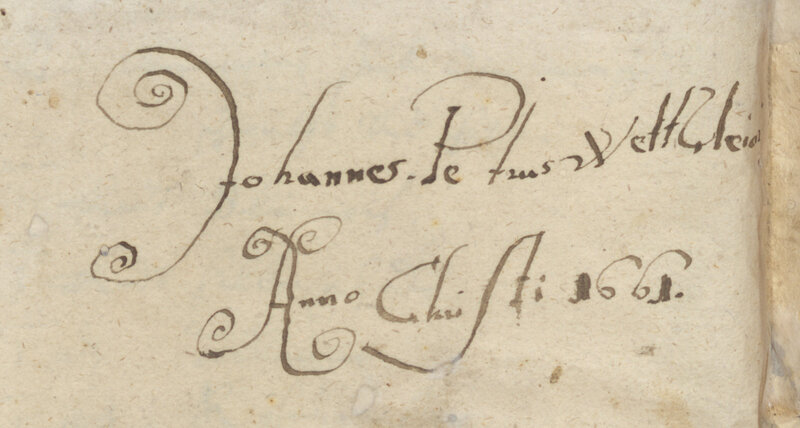 Johannes. Petrus
Anno Christi 1661.